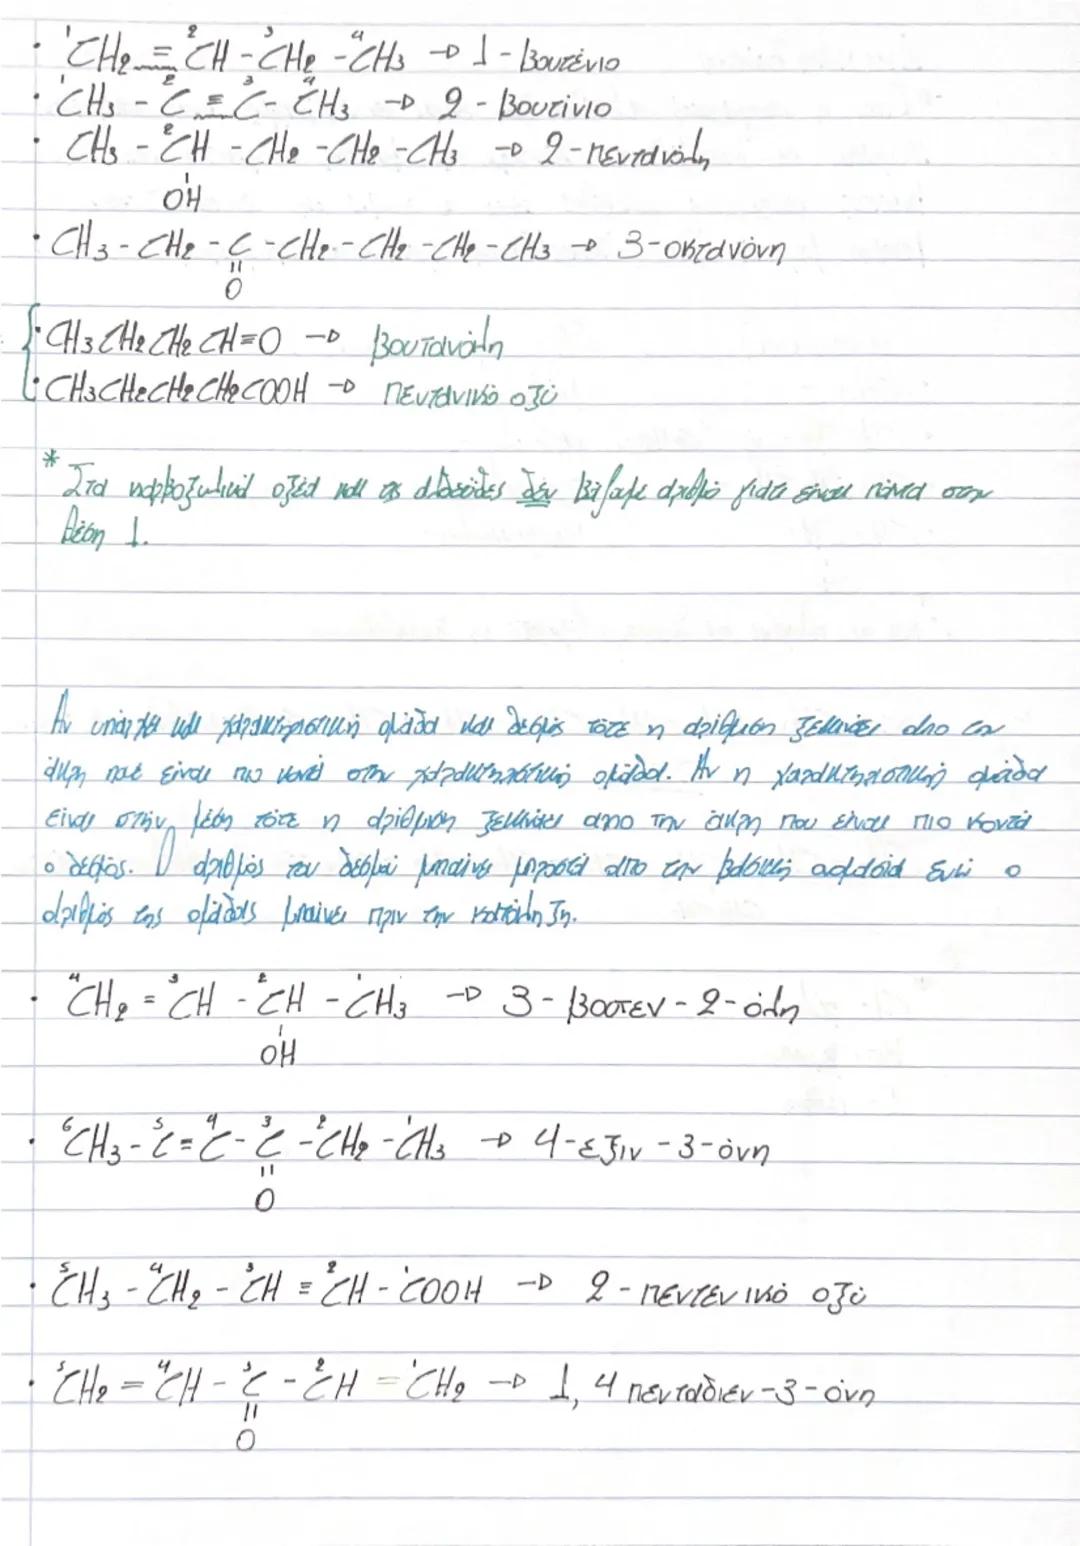 · ¹CH₂ = ²CH - ³CH₂ - ⁴CH₃ → 1 - βουτένιο
· ¹CH₃ - ²C ≡ ³C - ⁴CH₃ → 2 - βουτίνιο
· CH₃ - ²CH - CH₂ - CH₂ - CH₃ → 2 - πεντανόλη
OH
· CH₃ - CH₂ - C - CH₂ - CH₂ - CH₂ - CH₃ → 3-οκτανόνη
||
O
· CH₃CH₂CH₂CH=O → βουτανάλη
· CH₃CH₂CH₂CH₂COOH → πεντανικό οξύ
* Στα καρβοξυλικά οξέα και τις αλδεϋδες δεν βάζαμε αριθμό γιατί είναι πάντα στην
θέση 1.
Αν υπάρχει και χαρακτηριστική ομάδα και δεσμός τότε η αρίθμηση ξεκινάει απο την
άκρη που είναι πιο κοντά στην χαρακτηριστική ομάδα. Αν η χαρακτηριστική ομάδα
είναι στην μέση τότε η αρίθμιση ξεκινάει απο την άκρη που είναι πιο κοντά
ο δεσμός. Ο αριθμός του δεσμού μπαίνει μπροστά απο την βασική αλυσίδα ενώ ο
αριθμός της ομάδας μπαίνει πριν την κατάληξη.
· ⁴CH₂ = ³CH - ²CH - ¹CH₃ → 3 - βουτεν - 2 - όλη
OH
· ⁶CH₃ - ⁵C = ⁴C - ³C - ²CH₂ - ¹CH₃ → 4 - εξιν - 3 - όνη
||
O
· ⁵CH₃ - ⁴CH₂ - ³CH = ²CH - ¹COOH → 2 - πεντενικό οξύ
· ⁵CH₂ = ⁴CH - ³C - ²CH = ¹CH₂ → 1, 4 πενταδιεν - 3 - όνη
||
O